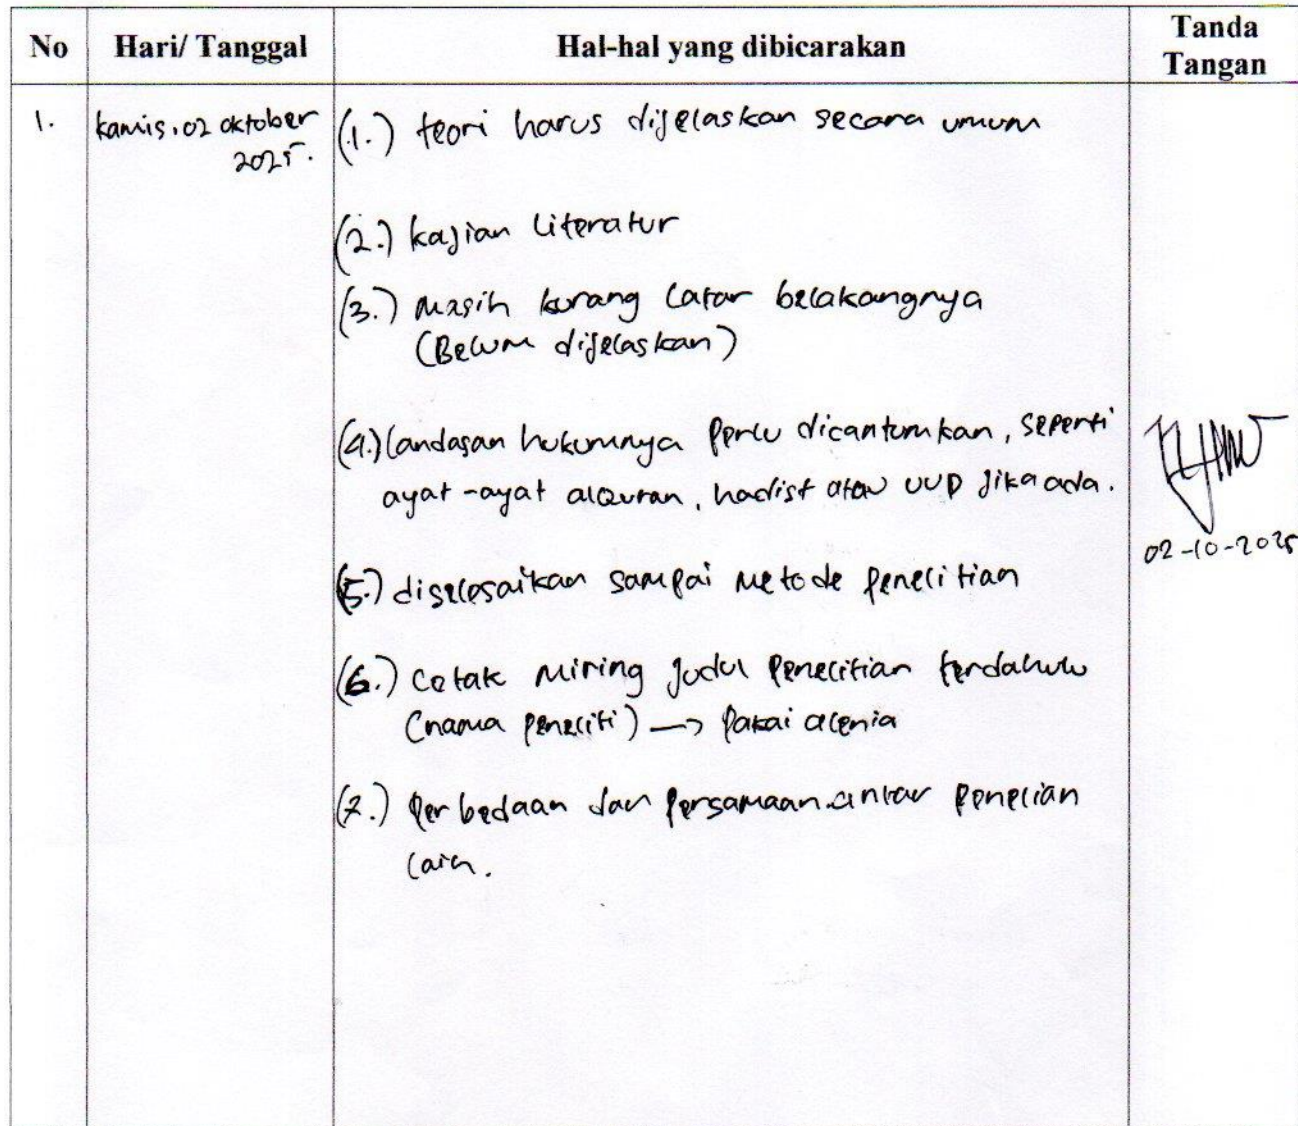 No
Hari/ Tanggal
Hal-hal yang dibicarakan
Tanda
Tangan
1.
kamis, 02 oktober
2025.
(1.) teori harus dijelaskan secara umum
(2.) kajian literatur
(3.) Masih kurang latar belakangnya
(Belum dijelaskan)
(4.) landasan hukumnya perlu dicantumkan, seperti
ayat-ayat alquran, hadist atau UUD jika ada.
(5.) diselesaikan sampai metode penelitian
(6.) Cetak miring judul penelitian terdahulu
(nama peneliti) → pakai alenia
(7.) Perbedaan dan persamaan antar penelian
lain.
02-10-2025